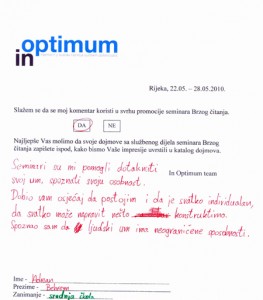 optimum
in
Rijeka, 22.05. – 28.05.2010.
Slažem se da se moj komentar koristi u svrhu promocije seminara Brzog čitanja.
DA NE
Najljepše Vas molimo da svoje dojmove sa službenog dijela seminara Brzog
čitanja zapišete ispod, kako bismo Vaše impresije uvrstili u katalog dojmova.
In Optimum team
Seminari su mi pomogli dotaknuti
svoj um, spoznati svoju osobnost.
Dobio sam osjećaj da postojim i da je svatko individualan,
da svatko može napravit nešto konstruktivno.
Spoznao sam da ljudski um ima neograničene sposobnosti.
Ime -
Prezime -
Zanimanje - srednja škola